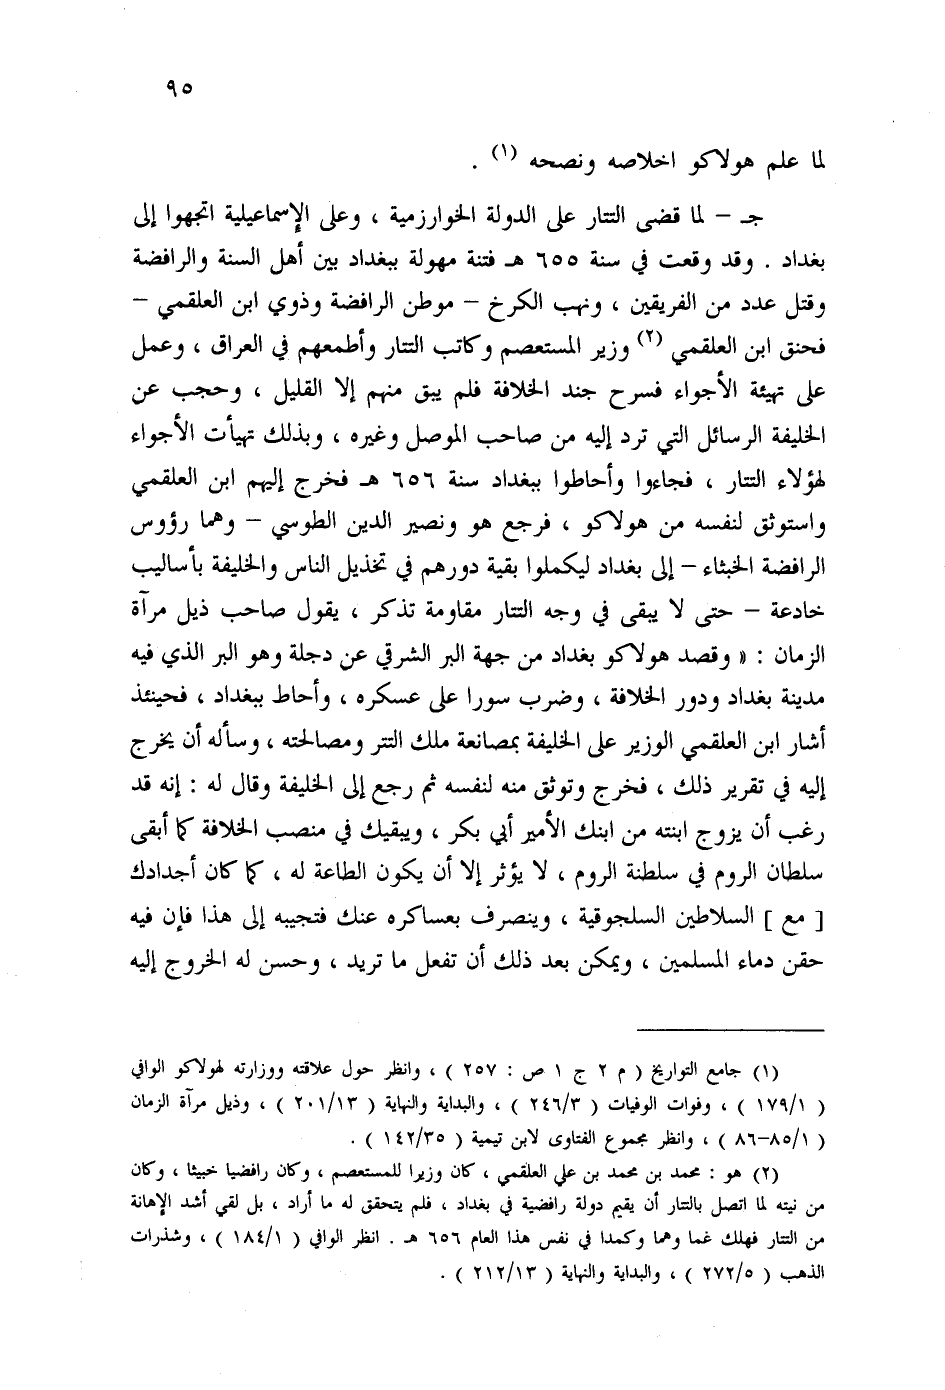 ٩٥
لما علم هولاكو اخلاصه ونصحه (١) .
جـ - لما قضى التتار على الدولة الخوارزمية ، وعلى الإسماعيلية اتجهوا إلى
بغداد . وقد وقعت في سنة ٦٥٥ هـ فتنة مهولة ببغداد بين أهل السنة والرافضة
وقتل عدد من الفريقين ، ونهب الكرخ - موطن الرافضة وذوي ابن العلقمي -
فحنق ابن العلقمي (٢) وزير المستعصم وكاتب التتار وأطمعهم في العراق ، وعمل
على تهيئة الأجواء فسرح جند الخلافة فلم يبق منهم إلا القليل ، وحجب عن
الخليفة الرسائل التي ترد إليه من صاحب الموصل وغيره ، وبذلك تهيأت الأجواء
لهؤلاء التتار ، فجاءوا وأحاطوا ببغداد سنة ٦٥٦ هـ فخرج إليهم ابن العلقمي
واستوثق لنفسه من هولاكو ، فرجع هو ونصير الدين الطوسي - وهما رؤوس
الرافضة الخبثاء - إلى بغداد ليكملوا بقية دورهم في تخذيل الناس والخليفة بأساليب
خادعة - حتى لا يبقى في وجه التتار مقاومة تذكر ، يقول صاحب ذيل مرآة
الزمان : « وقصد هولاكو بغداد من جهة البر الشرقي عن دجلة وهو البر الذي فيه
مدينة بغداد ودور الخلافة ، وضرب سورا على عسكره ، وأحاط ببغداد ، فحينئذ
أشار ابن العلقمي الوزير على الخليفة بمصانعة ملك التتر ومصالحته ، وسأله أن يخرج
إليه في تقرير ذلك ، فخرج وتوثق منه لنفسه ثم رجع إلى الخليفة وقال له : إنه قد
رغب أن يزوج ابنته من ابنك الأمير أبي بكر ، ويبقيك في منصب الخلافة كما أبقى
سلطان الروم في سلطنة الروم ، لا يؤثر إلا أن يكون الطاعة له ، كما كان أجدادك
[ مع ] السلاطين السلجوقية ، وينصرف بعساكره عنك فتجيبه إلى هذا فإن فيه
حقن دماء المسلمين ، ويمكن بعد ذلك أن تفعل ما تريد ، وحسن له الخروج إليه
(١) جامع التواريخ ( م ٢ ج ١ ص : ٢٥٧ ) ، وانظر حول علاقته ووزارته لهولاكو الوافي
( ١٧٩/١ ) ، وفوات الوفيات ( ٢٤٦/٣ ) ، والبداية والنهاية ( ٢٠١/١٣ ) ، وذيل مرآة الزمان
( ٨٥/١-٨٦ ) ، وانظر مجموع الفتاوى لابن تيمية ( ١٤٢/٣٥ ) .
(٢) هو : محمد بن محمد بن علي العلقمي ، كان وزيرا للمستعصم ، وكان رافضيا خبيثا ، وكان
من نيته لما اتصل بالتتار أن يقيم دولة رافضية في بغداد ، فلم يتحقق له ما أراد ، بل لقي أشد الإهانة
من التتار فهلك غما وهما وكمدا في نفس هذا العام ٦٥٦ هـ . انظر الوافي ( ١٨٤/١ ) ، وشذرات
الذهب ( ٢٧٢/٥ ) ، والبداية والنهاية ( ٢١٢/١٣ ) .